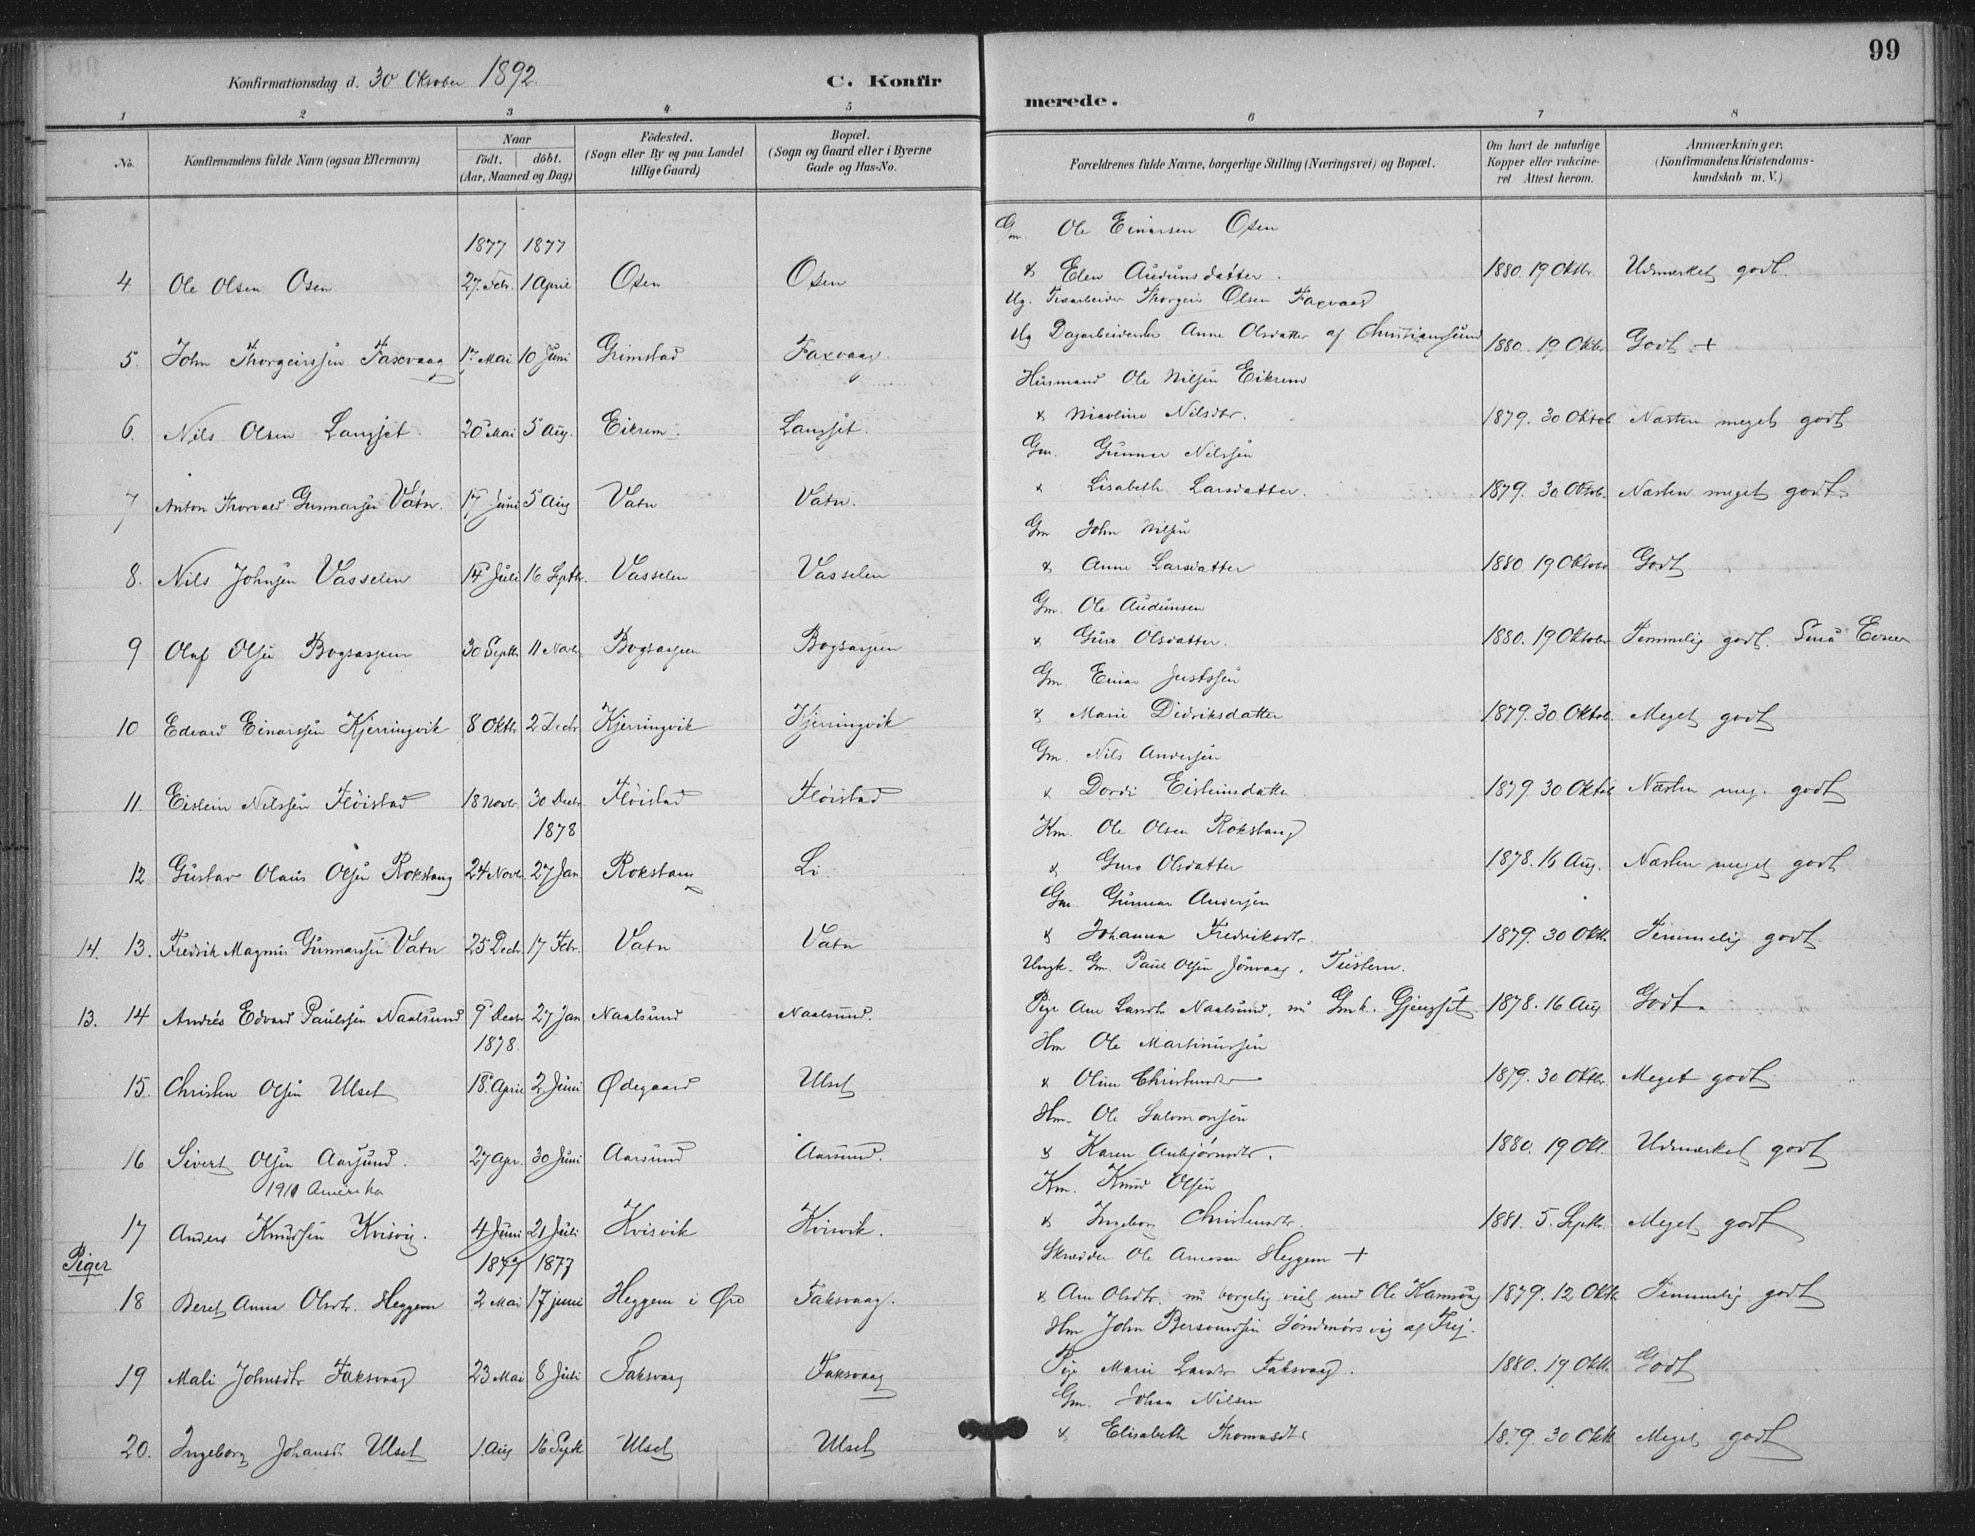 99
Konfirmationsdag d. 30 Oktober 1892.
C. Konfirmerede.
1 2 3 4 5 6 7 8
No. Konfirmandens fulde Navn (ogsaa Efternavn) Naar födt. döbt. (Aar, Maaned og Dag) Födested. (Sogn eller By og paa Landet tillige Gaard) Bopæl. (Sogn og Gaard eller i Byerne Gade og Hus-No. Forældrenes fulde Navne, borgerlige Stilling (Næringsvei) og Bopæl. Om havt de naturlige Kopper eller vakcineret Attest herom. Anmærkninger. (Konfirmandens Kristendomskundskab m. V.)
1877 1877 Gm. Ole Einarsen Osen
4 Ole Olsen Osen 27. Febr. 1 April Osen Osen & Elen Audunsdatter. 1880. 19 Oktbr. Udmerket godt.
Ug. Thorgeir Olsen Faxvaag
5. John Thorgeirssen Faxvaag 17. Mai 10 Juni Grimstad Faxvaag Ug Anne Olsdatter af Christianssund 1880. 19 Oktbr Godt +
Husmand Ole Nilsen Eikrem
6. Nils Olsen Langset. 20 Mai 5 Aug. Eikrem. Langset. & Nicoline Nilsdtr. 1879. 30 Oktob Næsten meget godt
Gm. Gunnar Nilssen
7 Anton Thorvald Gunnarsen Vatn. 17 Juni 5 Aug Vatn Vatn. & Lisabeth Larsdatter. 1879. 30 Oktob. Næsten meget godt.
Gm John Nilsen
8. Nils Johnsen Vasselen 14 Juli 16 Septbr. Vasselen Vasselen & Anne Larsdatter 1880. 19 Oktobr Godt
Gm. Ole Audunsen
9 Olaf Olsen Bogsaspen 30 Septbr 11 Novbr Bogsaspen Bogsaspen & Guro Olsdatter. 1880. 19 Oktober Temmelig godt. Små Evner
Gm. Einar Justssen
10 Edvard Einarssen Kjerringvik 8 Oktbr 2 Decbr Kjerringvik Kjerringvik & Marie Didriksdatter 1879. 30 Oktob. Meget godt
Gm. Nils Andersen
11. Eistein Nilssen Fløistad 18 Novbr. 30 Decbr Fløistad Fløistad & Dordi Eisteinsdatter 1879. 30 Oktob Næsten meg. godt
1878 Km. Ole Olsen Rokstang
12 Gustav Olaus Olsen Rokstang 24 Novbr. 27 Jan Rokstang Li. & Guro Olsdatter 1878. 16 Aug. Næsten meget godt
Gm. Gunnar Andersen
14. 13. Fredrik Magnus Gunnarsen Vatn 25 Decbr. 17 Febr. Vatn Vatn & Johanna Fredriksdtr 1879. 30 Oktb. Temmelig godt.
Ungk. Gm. Paul Olsen Jonvaag, Tustern.
13. 14 Andreas Edvard Paulsen Naalsund 9 Decbr 27 Jan. Naalsund Naalsund. Pige Ane Larsdtr Naalsund, nu Gmk. Gjengset 1878. 16 Aug Godt.
1878. Hm Ole Martinussen
15. Christen Olsen Ulset 18. April 2 Juni Ødegaard Ulset & Oline Christensdtr 1879. 30 Oktbr. Meget godt
Hm. Ole Salomonsen
16 Sivert Olsen Aarsund. 27 Apr. 30 Juni Aarsund Aarsund. & Karen Anbjørnsdtr. 1880. 19 Okt. Udmærket godt
1910 Amerika Km. Knud Olsen
17 Anders Knudsen Kvisvig. 4 Juni 21 Juli Kvisvik Kvisvik. & Ingeborg Christensdtr. 1881. 5. Septbr. Meget godt
Piger 1877 1877 Skrædder Ole Arnesen Heggem +
18 Beret Anna Olsdtr. Heggem 2 Mai 17 juni Heggem i Øre Faksvaag. & Ane Olsdtr. nu borgelig viet med Ole 1879. 12 Oktb Temmelig godt
Hm John af Frej.
19 Mali Johnsdtr Faksvaag 23 Mai 8 Juli Faksvaag Faksvaag Pige Marie Larsdtr Faksvaag. 1880. 19 Oktb. Godt
Gm. Johan Nilsen
20. Ingeborg Johansdtr. Ulset 1. Aug 16 Septb Ulset Ulset & Elisabeth Thomasdtr 1879. 30 Oktb Meget godt